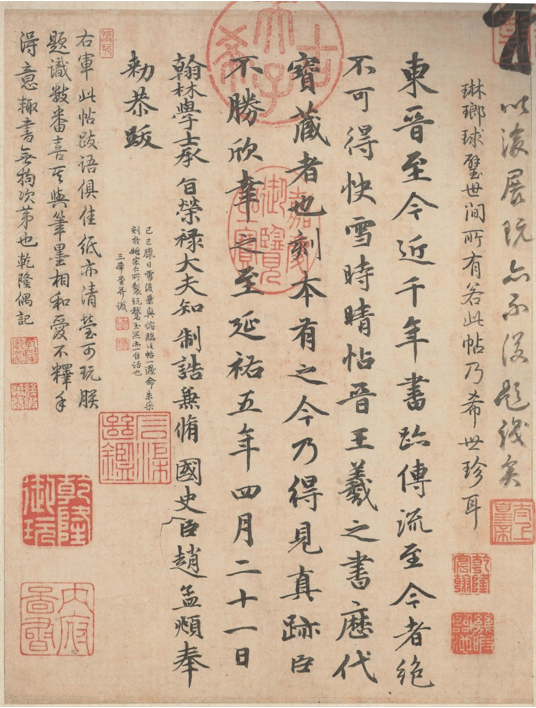 以後展玩亦不復題識矣
琳瑯球璧世間所有若此帖乃希世珍耳
東晉至今近千年書跡傳流至今者絶
不可得快雪時晴帖晉王羲之書歷代
寶藏者也刻本有之今乃得見真跡臣
不勝欣幸之至延祐五年四月二十一日
翰林學士承旨榮禄大夫知制誥兼脩國史臣趙孟頫奉
勑恭跋
己巳臘日雪後
右軍此帖跋語俱佳紙亦清瑩可玩朕
題識數番喜其與筆墨相和愛不釋手
得意輒書無拘次第也乾隆偶記
乾隆御玩
內府圖書
三希堂
嘉慶御覽之寶
太上皇帝